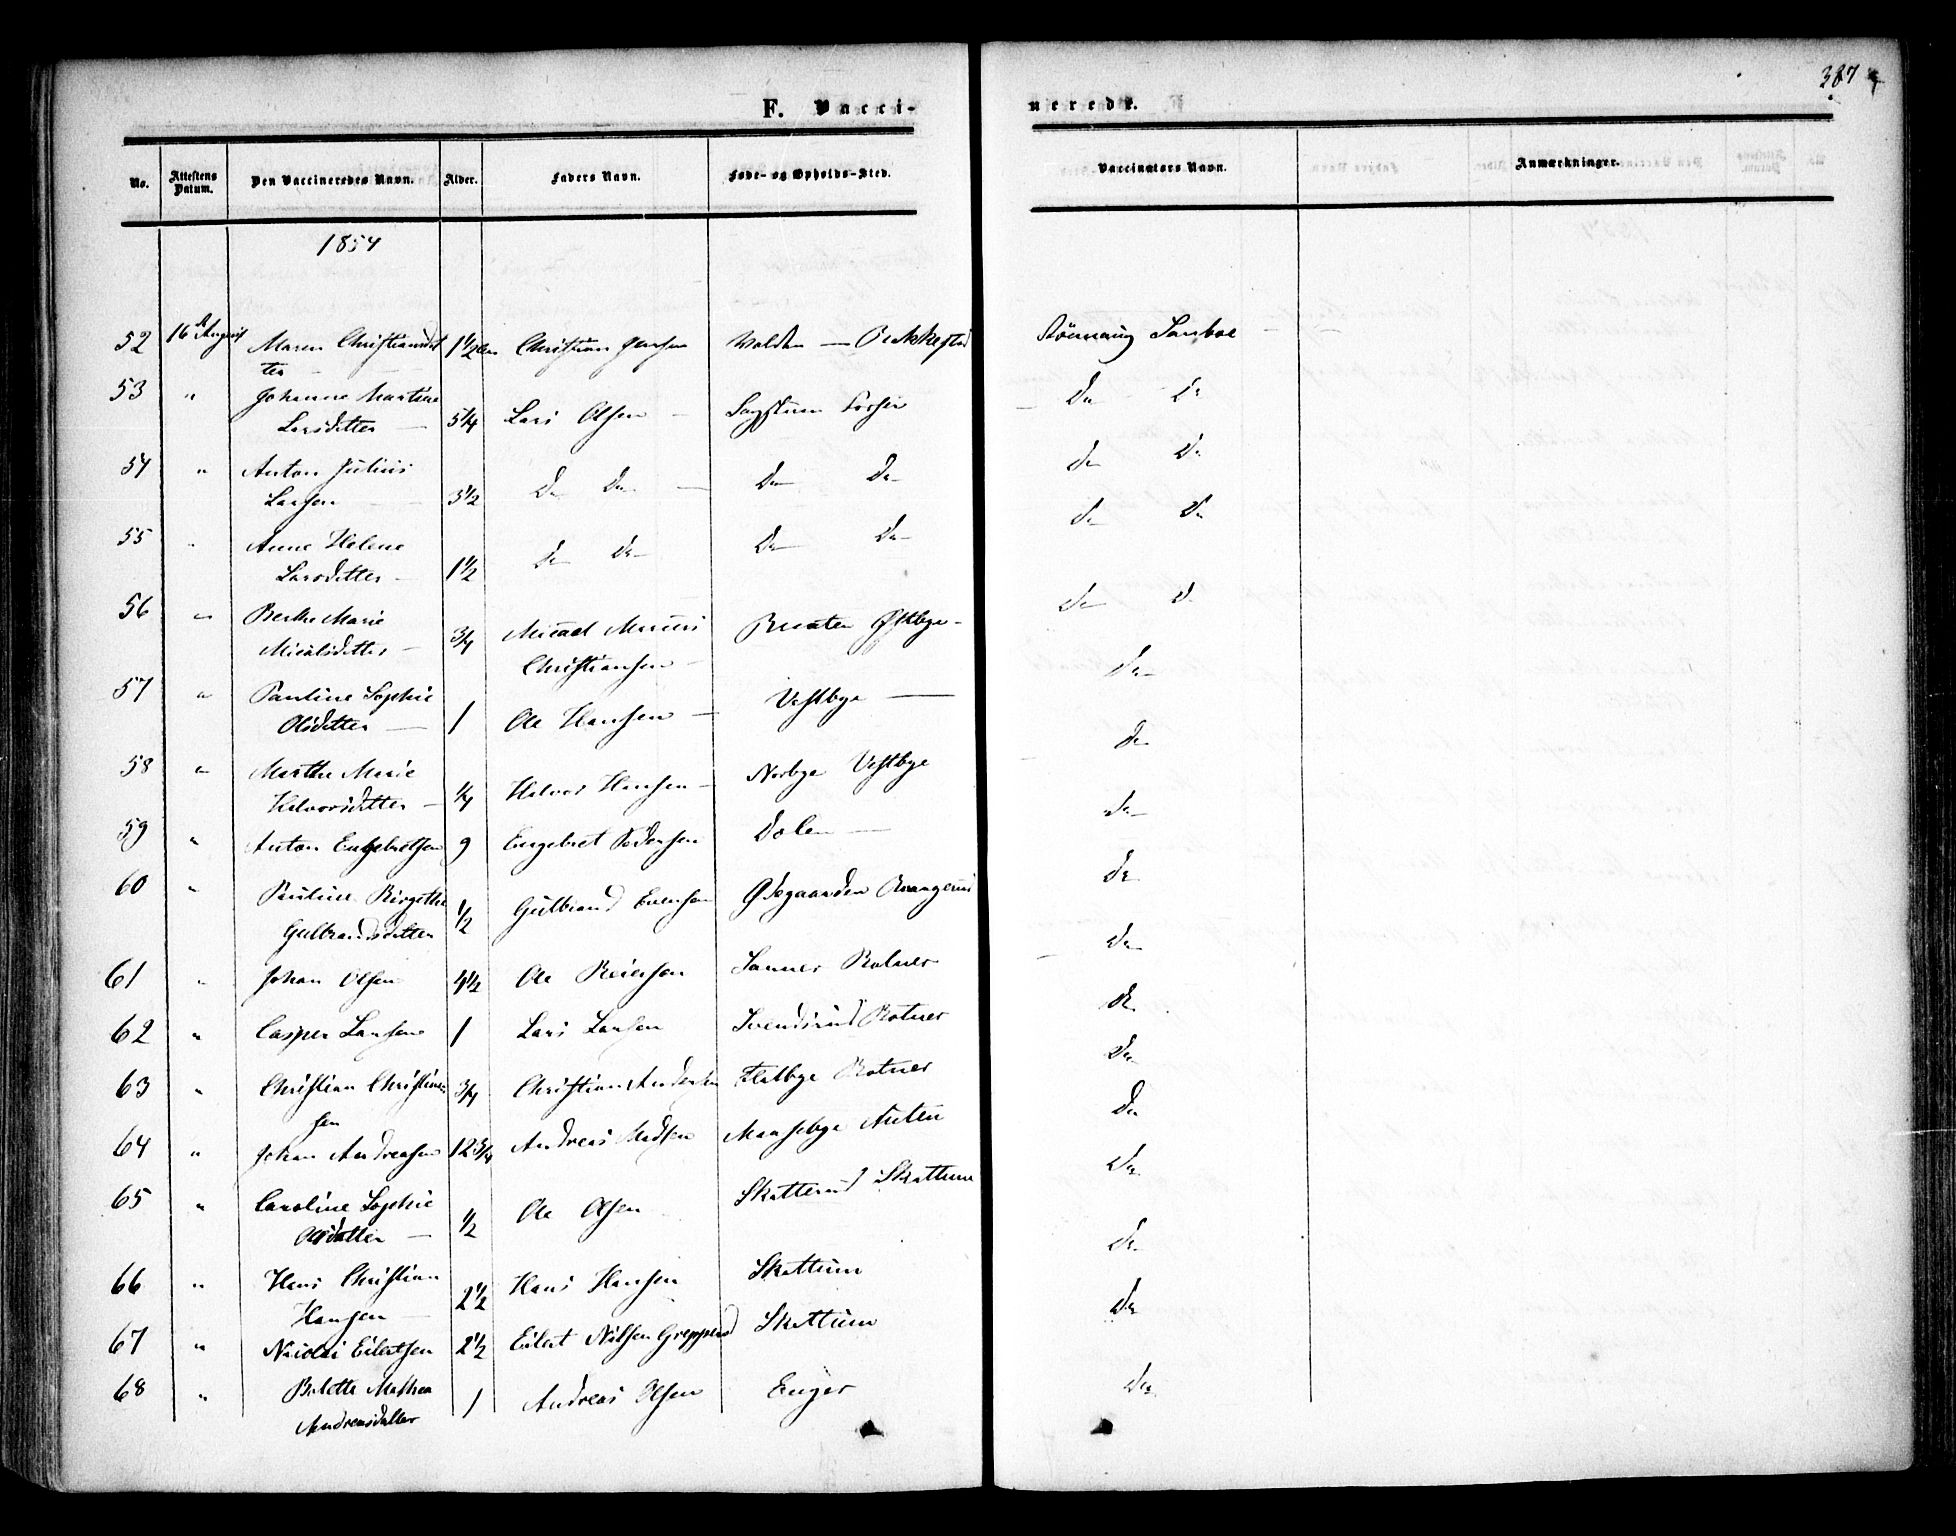 387
F. Vacci-
nerede.
No. Attestens Datum. Den Vaccineredes Navn. Alder. Faders Navn. Føde- og Opholds-Sted. Vaccinators Navn. Anmærkninger.
1854
52 16 August Maren Christiansdat 1½ Christian Jensen Walden — Bekkestad
ter
53 " Johanne Martine
Larsdatter — 5¼ Lars Olsen —
Do Do
54 " Anton Julius
Larsen — 3½ Do Do — Do Do
Do Do
55 " Anne Helene
Larsdatter — 1½ Do Do Do Do
Do Do
56 " Berthe Marie
Micalsdatter — ¾ Micael Christiansen — Braaten Østbye
Do Do
57 " Pauline Sophie
Olsdatter — 1 Ole Hansen — Vestbye —
Do
58 " Marthe Marie
Halvorsdatter — ¼ Halvor Hansen — Norbye Vestbye
Do
59 " Anton Engebretsen 9 Engebret Pedersen Dolen —
Do
60 " Pauline Birgithe
Gulbrandsdatter ½ Gulbrand Evensen Ødegaarden
Do
61 " Johan Olsen 4½ Ole Reiersen Sanner Rotner
Do
62 " Casper Larsen 1 Lars Larsen Svendsrud Rotner
Do
63 " Christian Christian ¾ Christian Andersen Flatbye Rotner
sen
Do
64 " Johan Andreasen 12¾ Andreas Madsen
Do
65 " Caroline Sophie
Olsdatter — ½ Ole Olsen Skatterud Skattum
Do
66 " Hans Christian
Hansen — 2½ Hans Hansen Skattum
Do
67 " Nicolai Eilertsen 2½ Eilert Nilsen Skattum
Do
68 " Mathea
Andreasdatter 1 Andreas Olsen Enger
Do